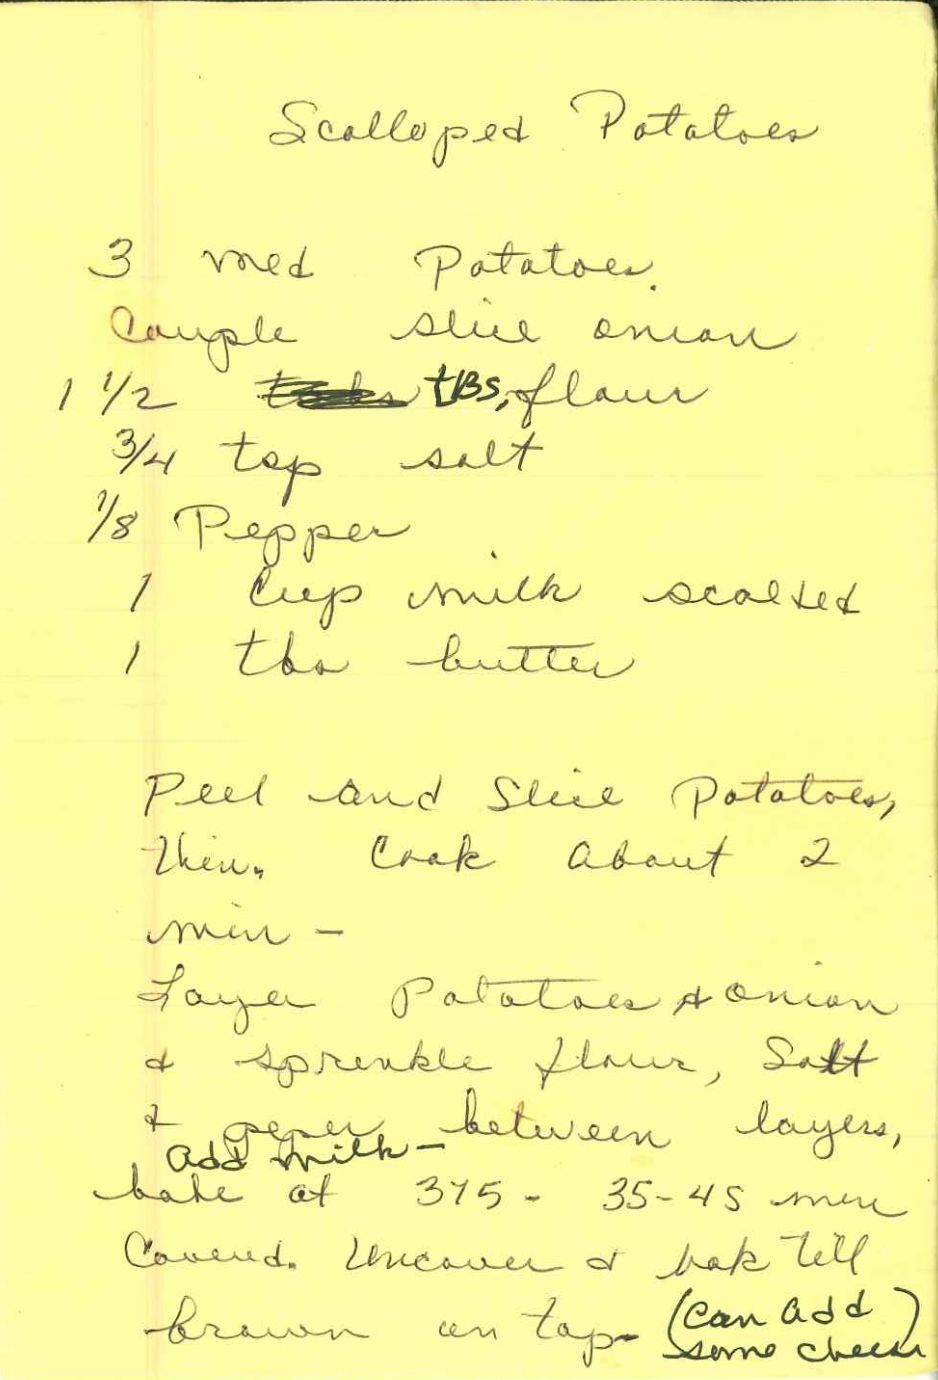 Scalloped Potatoes
3 med Potatoes.
Couple slice onion
1 1/2 tBS, flour
3/4 tsp salt
1/8 Pepper
1 Cup milk scalded
1 tbs butter
Peel and Slice Potatoes,
thin. Cook About 2
min -
Layer Potatoes & onion
& sprenkle flour, Salt
& peper between layers,
add milk -
bake at 375 - 35-45 min
Covered. Uncover & bak till
brown on top - (can add
some cheese)